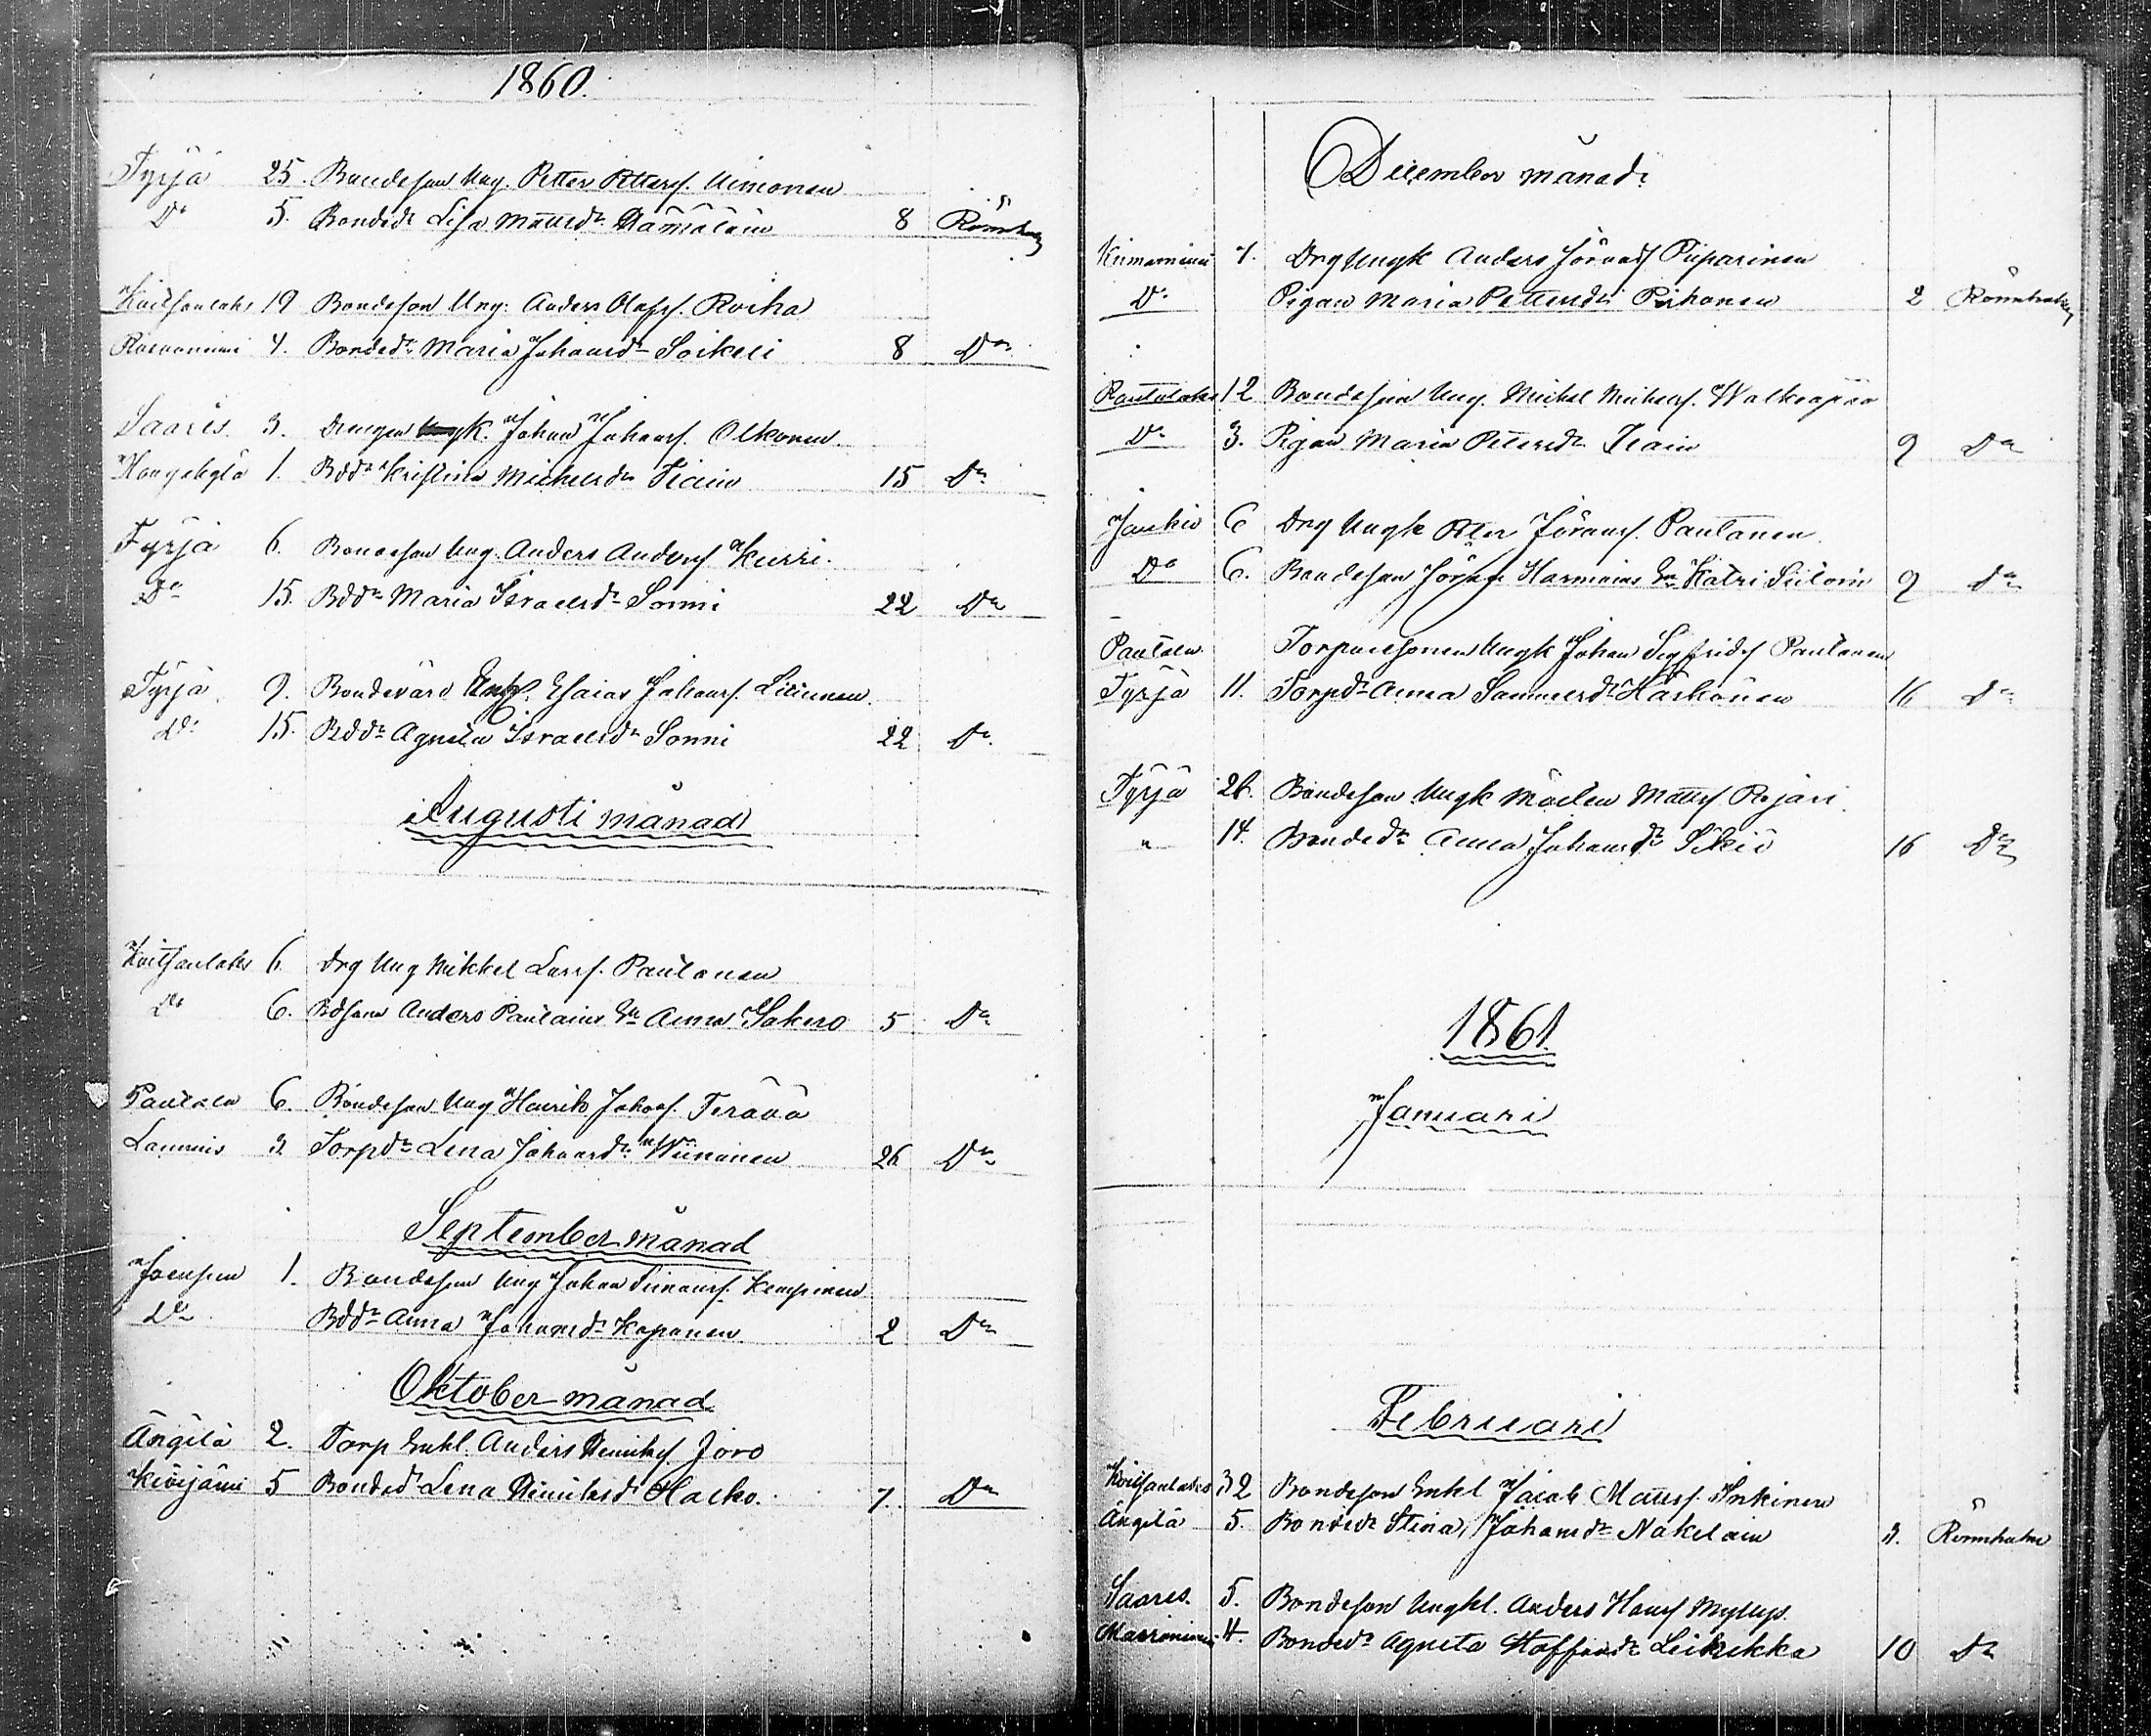 1860.
Tyrjä 25. Bondeson Ung. Petter Petters. Nimonen
Do 5. Bonded: Lisa Mattsdr Hämäläin 8 Rönnholm
Koitsanlaks 19 Bondeson Ung: Anders Olofs. Roiha
4. Bondedr Maria Johansdr Soikeli 8 Do
Saaris. 3. Drengen Ungk. Johan Johans. Olkonen
1. Bddr Kristina Michelsdr Tiain 15 Do
Tyrjä 6. Bondeson Ung. Anders Anders Kurri.
Do 15. Bddr Maria Israelsdr Sonni 22 Do
Tyrjä 9. Bondevärd Esaias Johans. Liiinnen
Do 15. Bddr Agneta Israelsdr Sonni 22 Do
Augusti månad
Koitsanlaks 6. Drg Ung Mikkel Lars. Pautanen
Do 6. Bdsons Anders Pautains En Anna Sakero 5 Do
Pautala 6. Bondeson Ung Henrik Johans. Terävä
Lammis 3 Torpdr Lena Johansdr Wiinanen 26 Do
September månad
Joensuu 1. Bondeson Ung Johan Simons. Kempinen
Do Bddr Anna Johansdr Kaponen 2 Do
Oktober månad
Ängilä 2. Torp Enkl. Anders Henriks Joro
Kivijärvi 5 Bondedr Lena Henriksdr Hacko. 7. Do
December månad:
7. Drg Ungk Anders Jörans Piiparinen
Do Pigan Maria Pettersdr Pirhonen 2 Rönnholm
Rautalaks 12 Bondeson Ung. Michel Michels. Walkeapää
Do 3. Pigan Maria Pettersdr Tiain 9 Do
Jankio 6 Drg Ungk Petter Jörans. Pautanen
Do 6. Bondeson Jöran Harmains En Katri Siitoin 9 Do
Pautala Torparesonen Ungk Johan Sigfrids Pautanen
Tyrjä 11. Torpdr Anna Samuelsdr Härkönen 16 Do
Tyrjä 26. Bondeson Ungk Mårten Matts Rojari
" 14. Bondedr Anna Johansdr Sikiö 16 Do
1861.
Januari
Februari
Koitsanlaks 32 Bondeson Enkl Jacob Matts. Inkinen
Ängilä 5. Bondedr Stina Johansdr Nokelain 3. Rönnholm
Saares. 5. Bondeson Ungkl. Anders Hans Myllys.
4. Bondedr Agneta Staffansdr Leikukka 10 Do